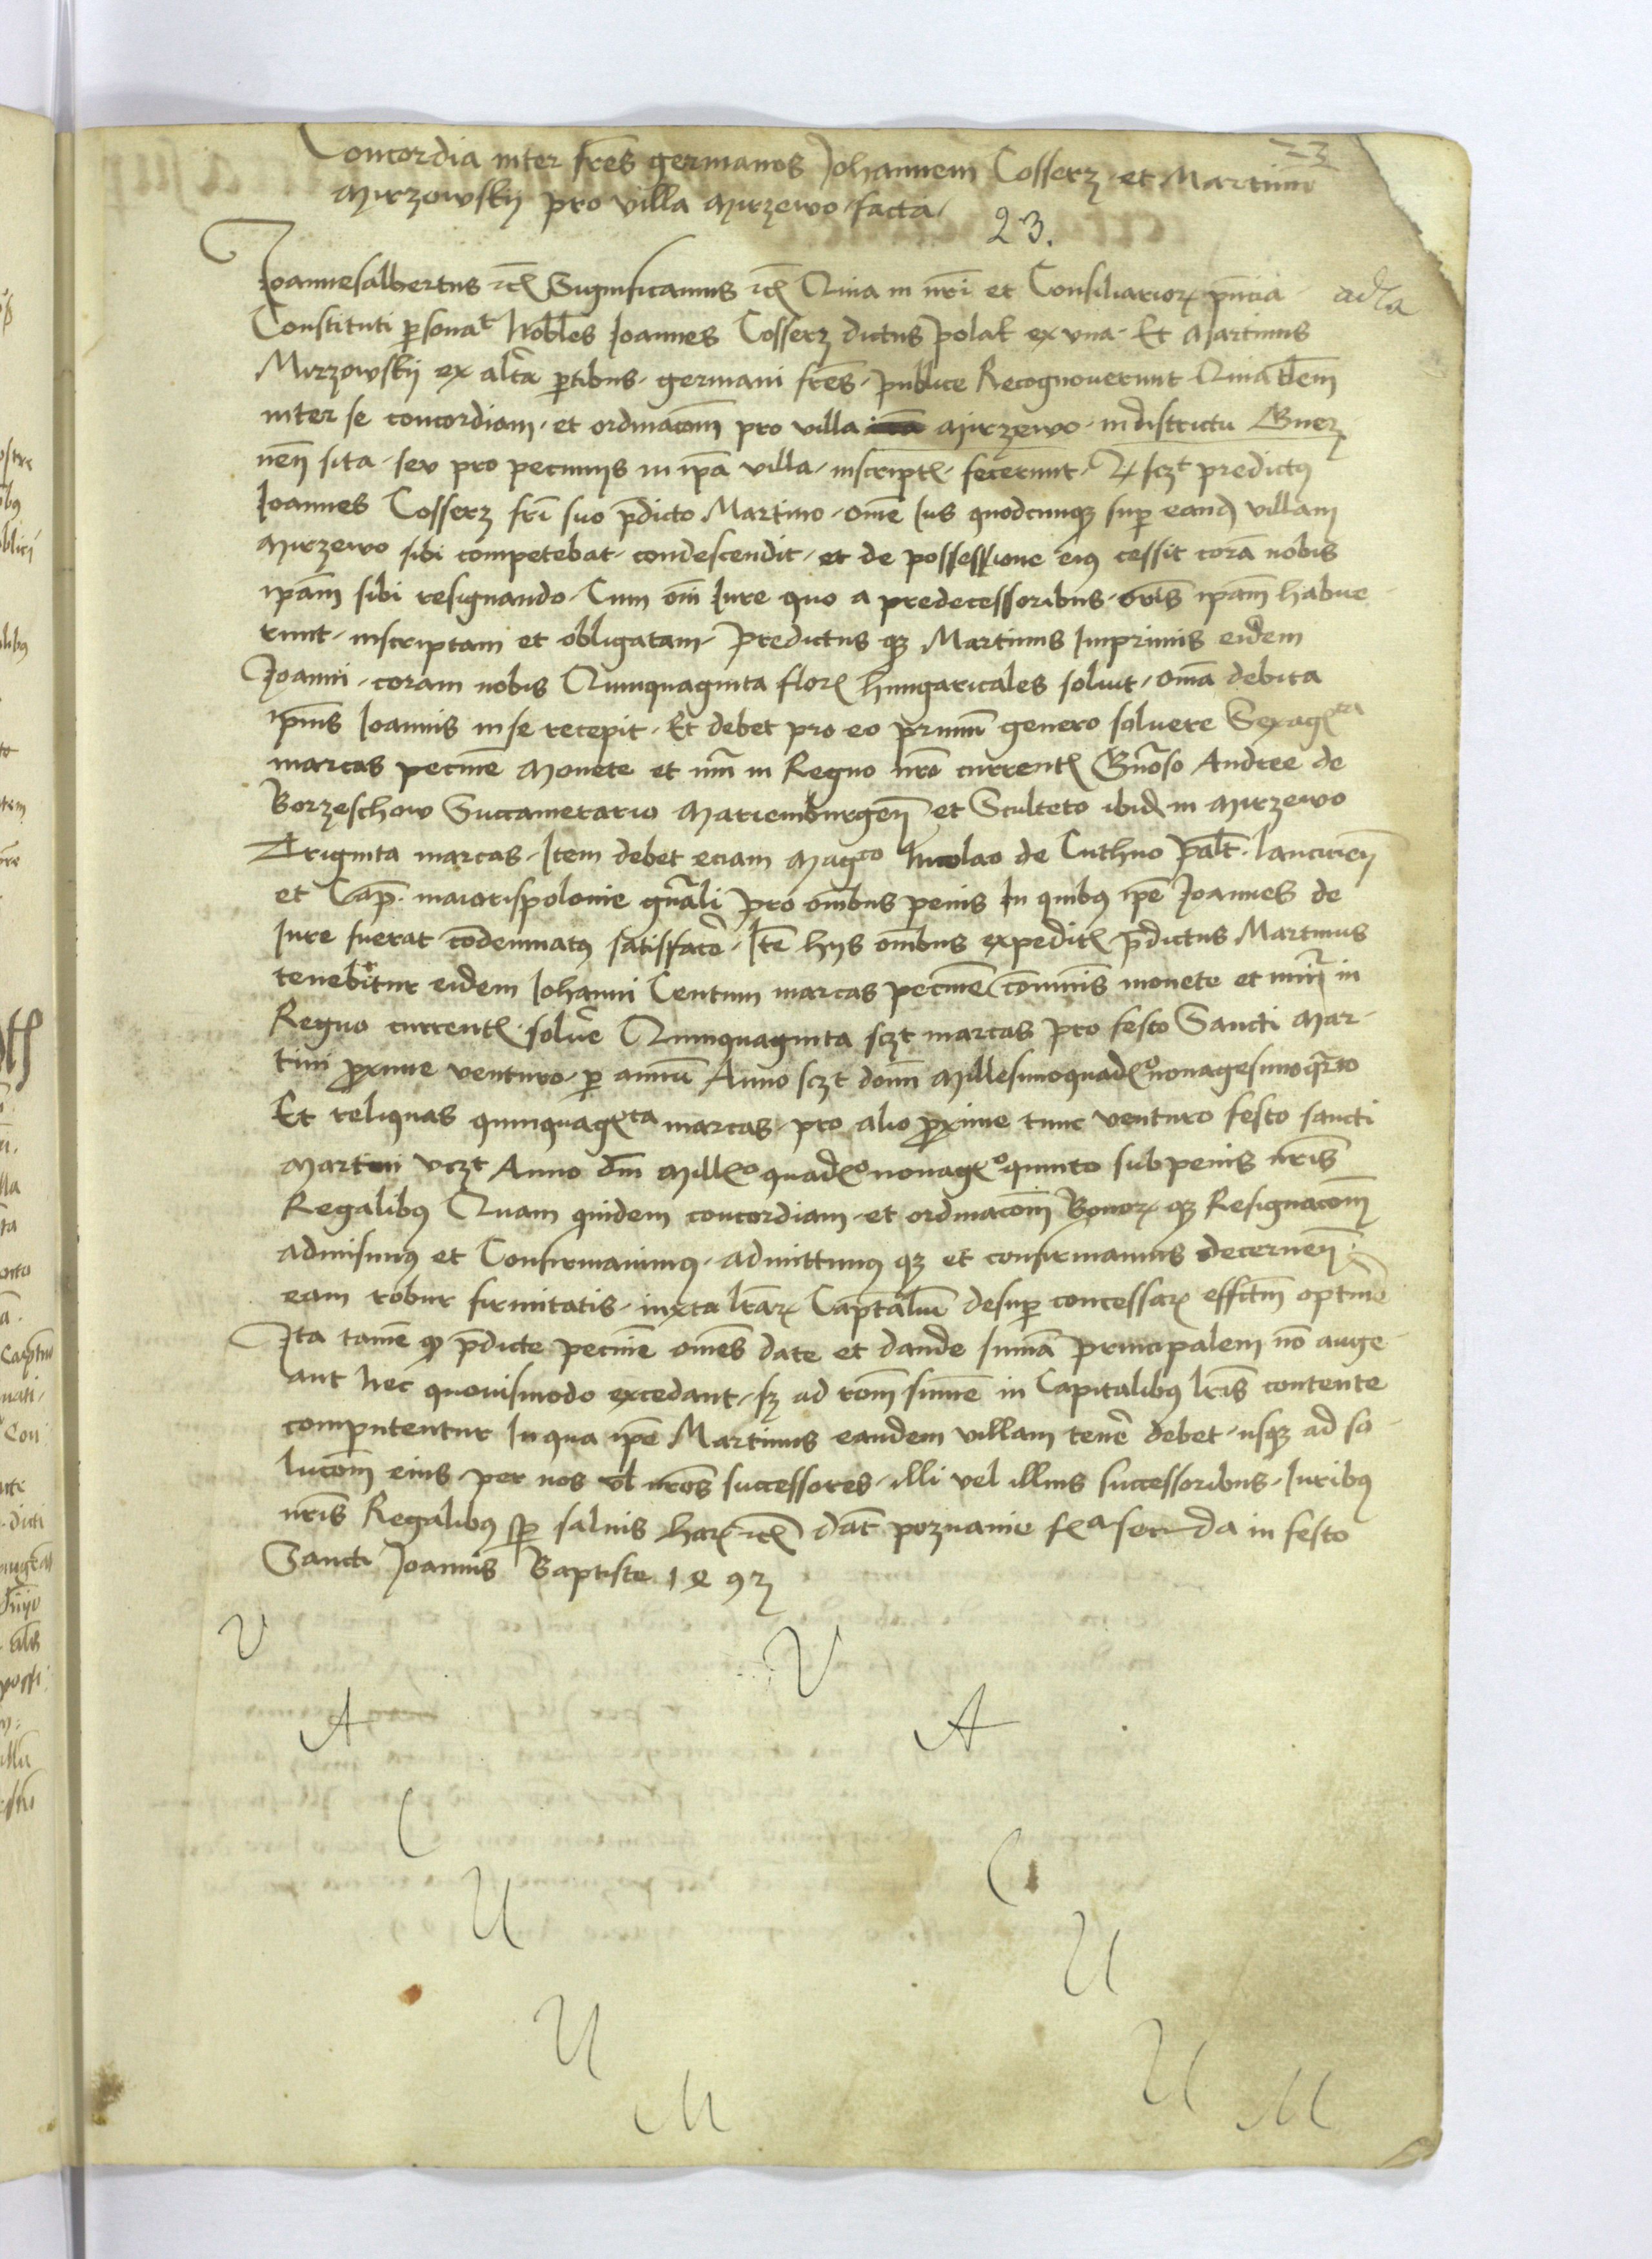 23
Concordia inter fres germanos Johannem Cosserz et Martinu
Mirzowskij pro villa Mirzewo facta
23.
Joannesalbertus etc Significamus etc Quia in nri et Consiliarior pncia
Constituti psonat Nobiles Joannes Cosserz dictus Polak ex una Et Martinus
Mirzowskij ex altera ptibus germani fres publice Recognoverunt Quia
inter se concordiam et ordinacom pro villa Mirzewo in districtu Gnez
nen sita seu pro pecuniis in ipa villa inscriptis fecerunt sczt predictus
Joannes Cosserz fri suo pdicto Martino ome Jus quodcunque sup eand villam
Mirzewo sibi competebat condescendit et de possessione eius cessit cora nobis
ipam sibi resignando Cum omi Jure quo a predecessoribus nris ipam habue
runt inscriptam et obligatam Predictus que Martinus Imprimis eidem
Joanni coram nobis Quinquaginta flor hungaricales solvit oma debita
ipius Joannis in se recepit Et debet pro eo primu genero solvere Sexagta
marcas pecunie Monete et nui in Regno nro currentis Gnoso Andree de
Borzeschow Succamerario Mariemburgen et Sculteto ibid in Mirzewo
Triginta marcas Item debet eciam Magco Nicolao de Cuthno Palt lancicien
et Cap maiorispolonie gnali pro omibus penis In quibus ipe Joannes de
Jure fuerat condemnatus satisface Ite hijs omibus expeditis pdictus Martinus
tenebitur eidem Johanni Centum marcas pecunie comunis monete et nui in
Regno currentis solve Quinquaginta sczt marcas pro festo Sancti Mar
tini pxime venturo p annu Anno sczt domi Millesimoquado nonagesimoqrto
Et reliquas quinquagta marcas pro alio pxime tunc venturo festo sancti
Martini vczt Anno dni Millo quado nonago quinto sub penis nris
Regalibus Quam quidem concordiam et ordinacom Bonor que Resignacom
admisimus et Confirmavimus admittimus que et confirmamus decernen
eam robur firmitatis iuxta lrar Captaliu desup concessar effctm optine
Ita tame quod pdicte pecunie omes date et dande suma principalem no auge
ant nec quovismodo excedant sz ad rom sume in Capitalibus lris contente
computentur In qua ipe Martinus eandem villam tene debet usque ad so
lucom eius per nos vl nros successores illi vel illius successoribus Juribus
nris Regalibus sp salvis har etc Dat poznanie fa secda in festo
Sancti Joannis Baptiste 1493
V V
A A
C C
U U
U U
M M